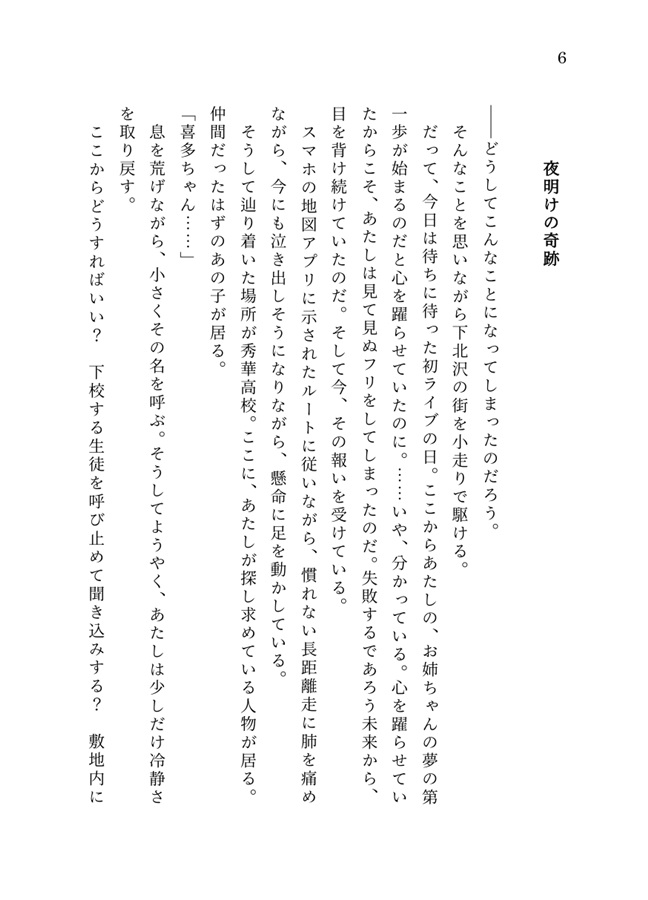 6
夜明けの奇跡
――どうしてこんなことになってしまったのだろう。
そんなことを思いながら下北沢の街を小走りで駆ける。
だって、今日は待ちに待った初ライブの日。ここからあたしの、お姉ちゃんの夢の第
一歩が始まるのだと心を躍らせていたのに。……いや、分かっている。心を躍らせてい
たからこそ、あたしは見て見ぬフリをしてしまったのだ。失敗するであろう未来から、
目を背け続けていたのだ。そして今、その報いを受けている。
スマホの地図アプリに示されたルートに従いながら、慣れない長距離走に肺を痛め
ながら、今にも泣き出しそうになりながら、懸命に足を動かしている。
そうして辿り着いた場所が秀華高校。ここに、あたしが探し求めている人物が居る。
仲間だったはずのあの子が居る。
「喜多ちゃん……」
息を荒げながら、小さくその名を呼ぶ。そうしてようやく、あたしは少しだけ冷静さ
を取り戻す。
ここからどうすればいい？　下校する生徒を呼び止めて聞き込みする？　敷地内に